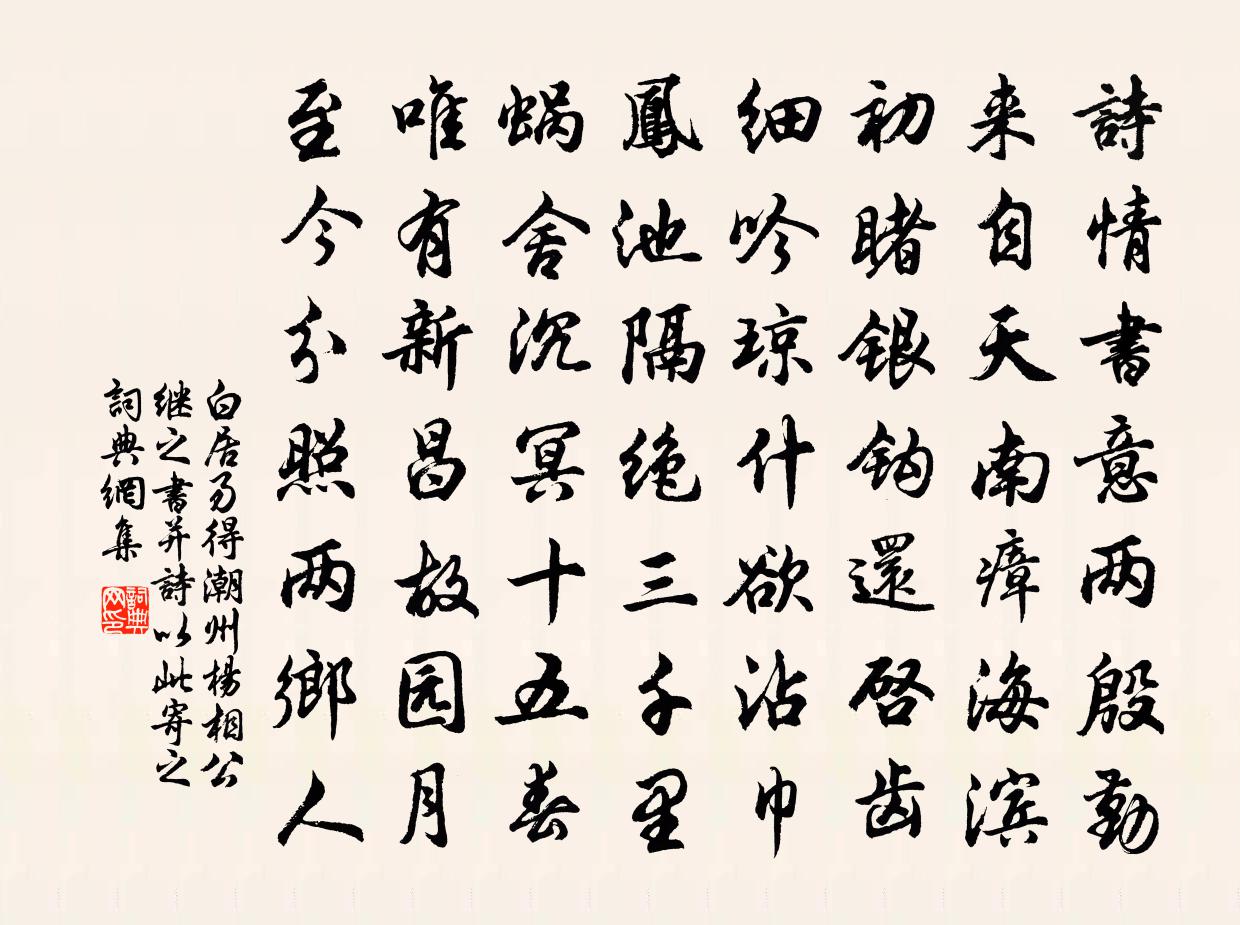 詩情書意两殷勤
来自天南瘴海滨
初睹銀钩還啓齿
细吟琼什欲沾巾
鳳池隔绝三千里
蜗舍沉冥十五春
唯有新昌故园月
至今分照两鄉人
白居易得潮州楊相公
继之書并詩以此寄之
詞典網集
詞典
网印